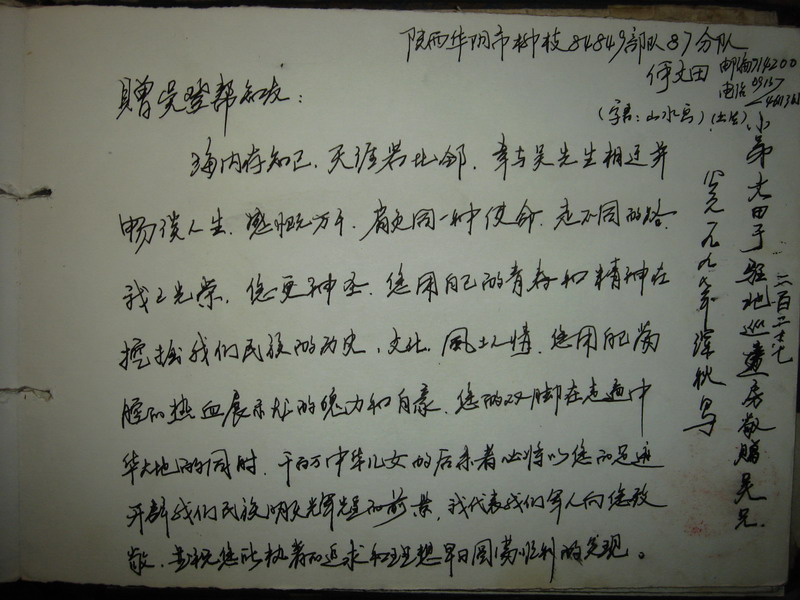 陕西华阴市柳枝84849部队87分队
何文田 邮编714200
电话0913
(字君:山水鸟)
赠吴登帮知友:
海内存知己,天涯若比邻,幸与吴先生相逢并
畅谈人生,感慨万千,肩负同一种使命,走不同的路,
我之光荣,您更神圣,您用自己的青春和精神在
挖掘我们民族的历史、文化、风土人情,您用自己满
腔的热血展示人的魄力和自豪,您的双脚在走遍中
华大地的同时,千百万中华儿女的后来者必将以您的足迹
开辟我们民族明天辉煌的前景,我代表我们军人向您致
敬,并祝您能执着的追求和理想早日圆满顺利的实现。
小弟文田于驻地巡逻房敬赠吴兄
公元一九九八年深秋